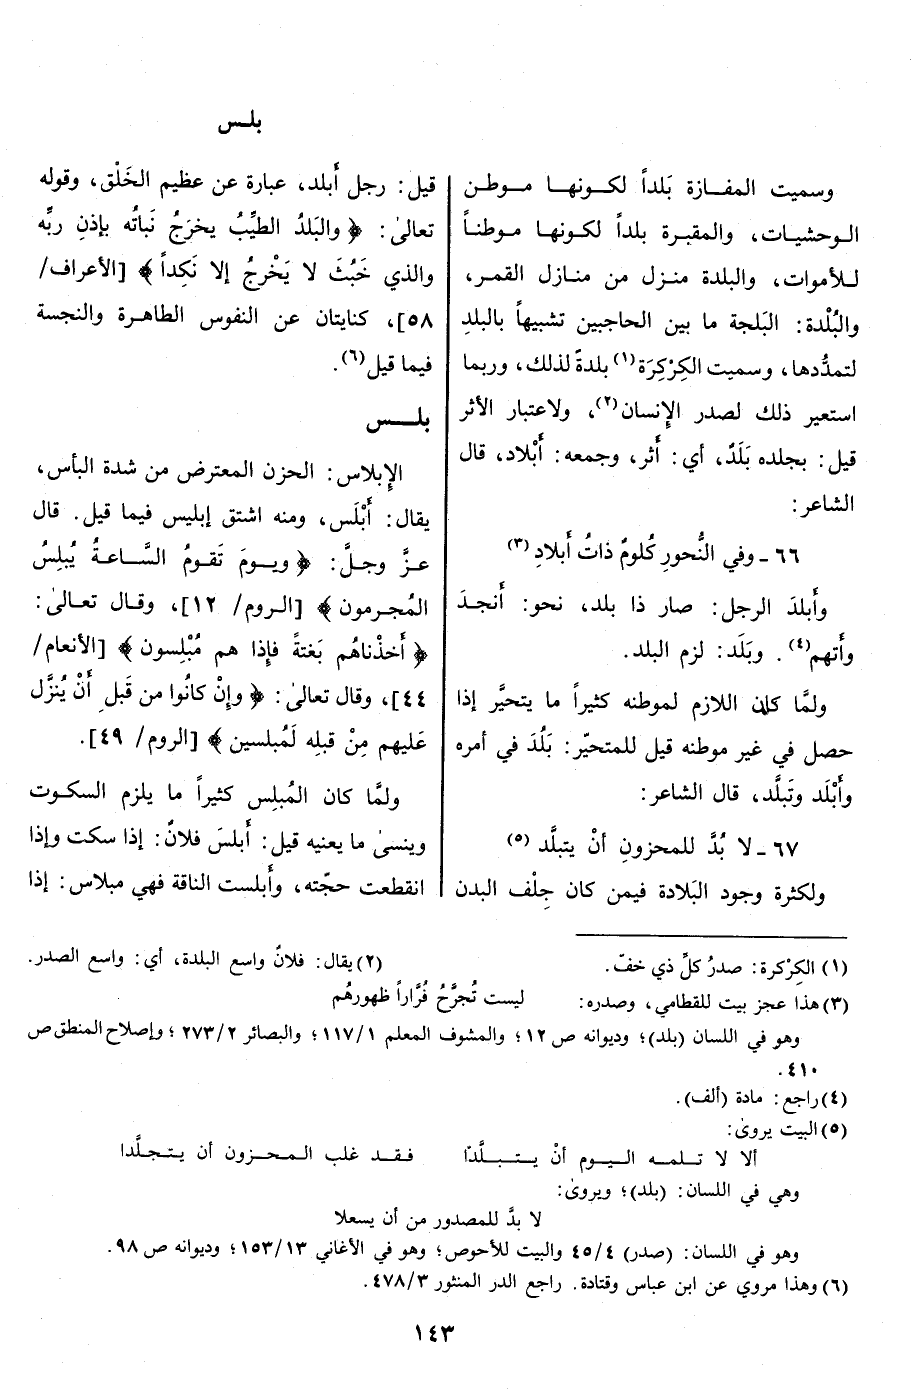 بلـس
وسميت المفـازة بَلداً لكـونهـا مـوطـن
الـوحشيـات، والمقبـرة بلداً لكـونهـا مـوطنـاً
لـلأموات، والبلدة منـزل من منـازل القمـر،
والبُلْدة: البَلجة ما بين الحاجبين تشبيهاً بالبلدِ
لتمدُّدها، وسميت الكِرْكِرَة(١) بلدةً لذلك، وربما
استعير ذلك لصدر الإِنسان(٢)، ولاعتبار الأثر
قيل: بجلده بَلَدٌ، أي: أثر، وجمعه: أَبْلاد، قال
الشاعر:
٦٦ ـ وفي النُّحورِ كُلومٌ ذاتُ أَبلادِ(٣)
وأَبلدَ الرجل: صار ذا بلد، نحو: أَنجـدَ
وأَتهم(٤). وبَلَد: لزم البلد.
ولمَّا كان اللازم لموطنه كثيراً ما يتحيَّر إذا
حصل في غير موطنه قيل للمتحيّر: بَلُدَ في أمره
وأَبْلَد وتَبلَّد، قال الشاعر:
٦٧ ـ لا بُدَّ للمحزونِ أنْ يتبلَّد(٥)
ولكثرة وجود البَلادة فيمن كان جِلْف البدن
قيل: رجل أَبلد، عبارة عن عظيم الخَلْق، وقوله
تعالىٰ: ﴿ والبَلدُ الطيِّبُ يخرَجُ نَباتُه بإذنِ ربِّه
والذي خَبُثَ لا يَخْرجُ إلا نَكِداً ﴾ [الأعراف/
٥٨]، كنايتان عن النفوس الطاهـرة والنجسة
فيما قيل(٦).
بلـــس
الإِبلاس: الحزن المعترض من شدة البأس،
يقال: أَبْلَس، ومنه اشتق إبليس فيما قيل. قال
عـزَّ وجـلَّ: ﴿ ويـومَ تَقومُ السَّـاعـةُ يُبلِسُ
المُجـرمون ﴾ [الروم/ ١٢]، وقـال تعـالىٰ:
﴿ أَخذْناهُم بَغتةً فإذا هم مُبْلِسون ﴾ [الأنعام/
٤٤]، وقال تعالىٰ: ﴿ وإنْ كانُوا من قَبلِ أَنْ يُنزَّل
عَليهم مِنْ قبلِه لَمُبلسين ﴾ [الروم/ ٤٩].
ولمَّا كان المُبلِس كثيراً ما يلزم السكوت
وينسىٰ ما يعنيه قيل: أَبلسَ فلانٌ: إذا سكت وإذا
انقطعت حجّته، وأَبلست الناقة فهي مبلاس: إذا
(١) الكِرْكرة: صدرُ كلِّ ذي خفّ. (٢) يقال: فلانٌ واسع البلدة، أي: واسع الصدر.
(٣) هذا عجز بيت للقطامي، وصدره: ليست تُجرَّحُ فُرَّاراً ظهورهُم
وهو في اللسان (بلد)؛ وديوانه ص ١٢؛ والمشوف المعلم ١١٧/١؛ والبصائر ٢٧٣/٢؛ وإصلاح المنطق ص
٤١٠.
(٤) راجع: مادة (ألف).
(٥) البيت يروىٰ:
ألا لا تـلمـه اليـوم أنْ يـتـبـلَّدا فـقـد غلب المـحـزون أن يـتـجلَّدا
وهي في اللسان: (بلد)؛ ويروىٰ:
لا بدَّ للمصدور من أن يسعلا
وهو في اللسان: (صدر) ٤٥/٤ والبيت للأحوص؛ وهو في الأغاني ١٥٣/١٣؛ وديوانه ص ٩٨.
(٦) وهذا مروي عن ابن عباس وقتادة. راجع الدر المنثور ٤٧٨/٣.
١٤٣